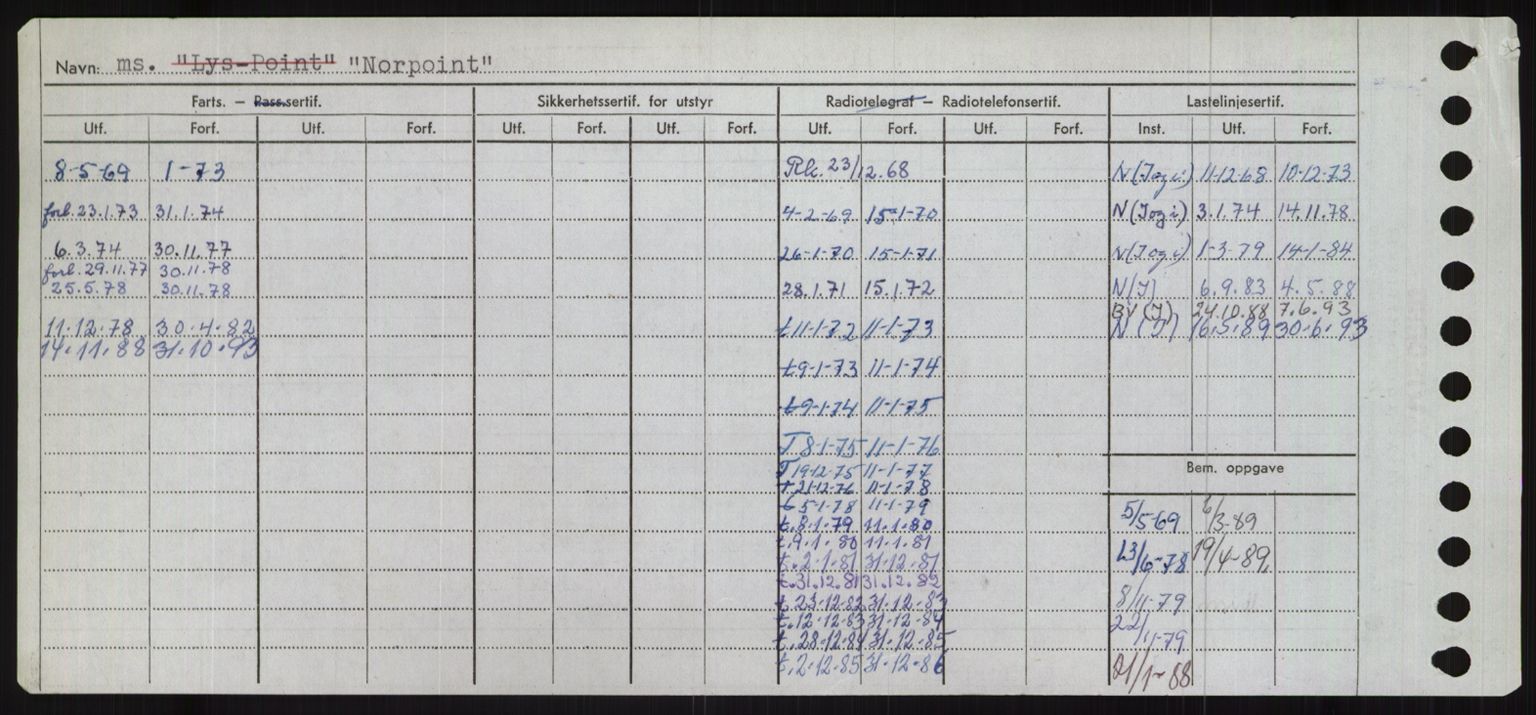 Navn: ms. "Lys-Point" "Norpoint"
Farts. — Pass.sertif. Sikkerhetssertif. for utstyr Radiotelegraf — Radiotelefonsertif. Lastelinjesertif.
Utf. Forf. Utf. Forf. Utf. Forf. Utf. Forf. Utf. Forf. Utf. Forf. Inst. Utf. Forf.
8-5-69 1-73 Rk. 23/12.68 N(Jogi) 11-12-68 10-12-73
forl. 23.1.73 31.1.74 4-2-69 15-1-70 N(Jogi) 3.1.74 14.11.78
6.3.74 30.11.77 26-1-70 15-1-71 N(Jogi) 1-3-79 14-1-84
forl. 29.11.77 30.11.78
25.5.78 30.11.78 28.1.71 15.1.72 N(J) 6.9.83 4.5.88
BV(J) 24.10.88 7.6.93
11.12.78 30.4.82 t11-1-72 11-1-73 N(J) 16.5.89 30.6.93
14.11.88 31.10.93
t9-1-73 11-1-74
t9-1-74 11-1-75
T 8-1-75 11-1-76
T 19-12-75 11-1-77 Bem. oppgave
t 21-12-76 11-1-78
t 5-1-78 11-1-79 5/5-69 6/3-89
t.8.1.79 11.1.80
t.9.1.80 11.1.81
t.2.1.81 31.12.81 23/6-78 19/4-89.
t.31.12.81 31.12.82
t.23.12.82 31.12.83 8/11-79
t.12.12.83 31.12.84
t.28.12.84 31.12.85 22/11-79
t.2.12.85 31.12.86 21/1-88